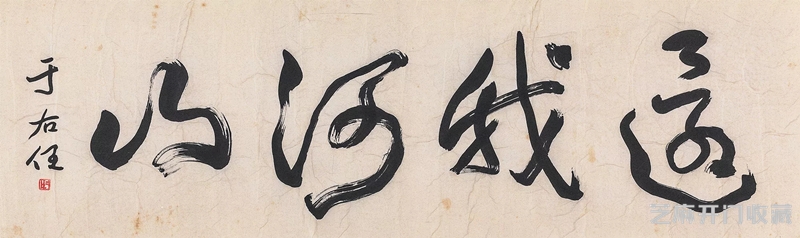 還我河山
于右任
艺麻开门收藏